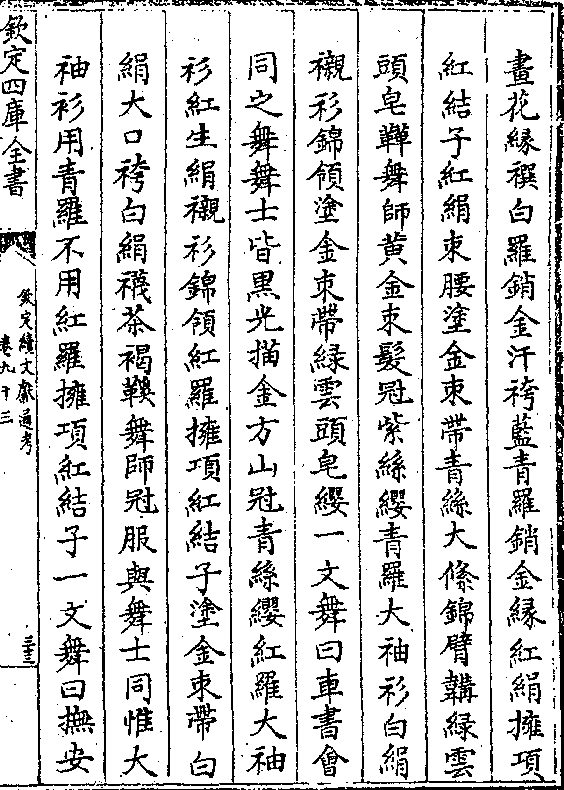 畫花緣襈白羅銷金汗袴藍青羅銷金緣紅絹擁項
紅結子紅絹束腰塗金束帶青絲大絛錦臂韝綠雲
頭皂鞾舞師黃金束髮冠紫絲纓青羅大袖衫白絹
襯衫錦領塗金束帶綠雲頭皂纓一文舞曰車書會
同之舞舞士皆黑光描金方山冠青絲纓紅羅大袖
衫紅生絹襯衫錦領紅羅擁項紅結子塗金束帶白
絹大口袴白絹襪茶褐鞵舞師冠服與舞士同惟大
袖衫用青羅不用紅羅擁項紅結子一文舞曰撫安
欽定四庫全書
欽定續文獻通考
卷九十三
三十三